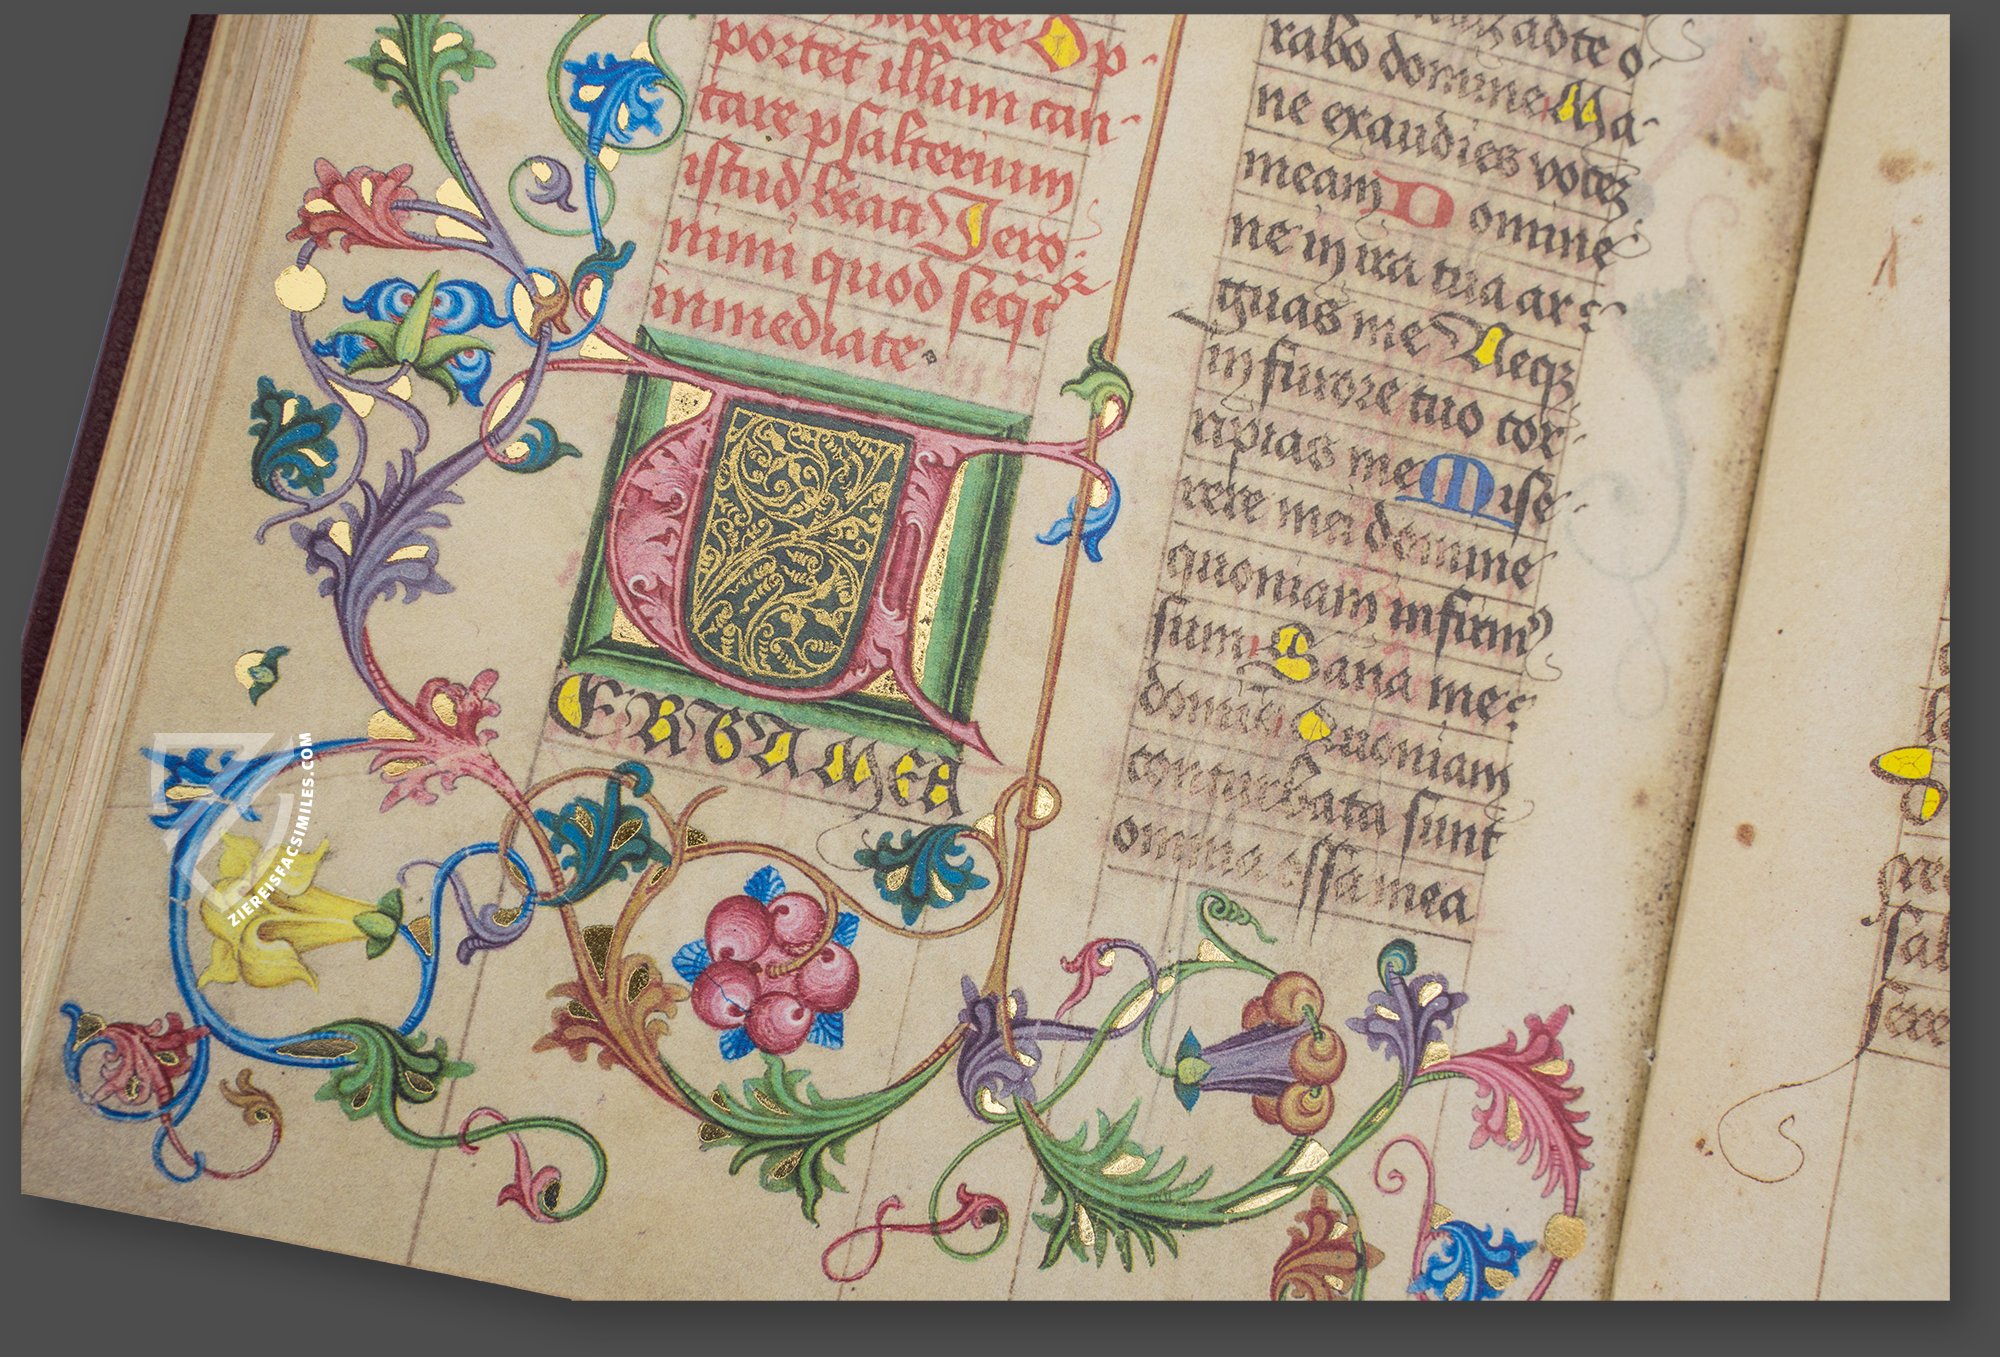 ngere Op-
portet illum can-
tare psalterium
istud beati Jero-
nimi quod seqr
immediate.
VERBA MEA
adte o-
rabo domine Ma-
ne exaudies vocez
meam Domine
ne in ira tua ar-
guas me Neqz
in furore tuo cor-
ripias me Mise-
rere mei domine
quoniam infirm9
sum Sana me
domine quoniam
conturbata sunt
omnia ossa mea
ZIEREISFACSIMILES.COM